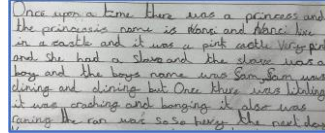 Once upon a time there was a princess and
the princessis name is Nanci and Nanci live
in a castle and it was a pink castle Very pink
and she had a slave and the slave was a
boy and the boys name was Sam, Sam was
dining and dining but Once there was
it was crashing and banging it also was
raning the ran was so So hevy. the next day